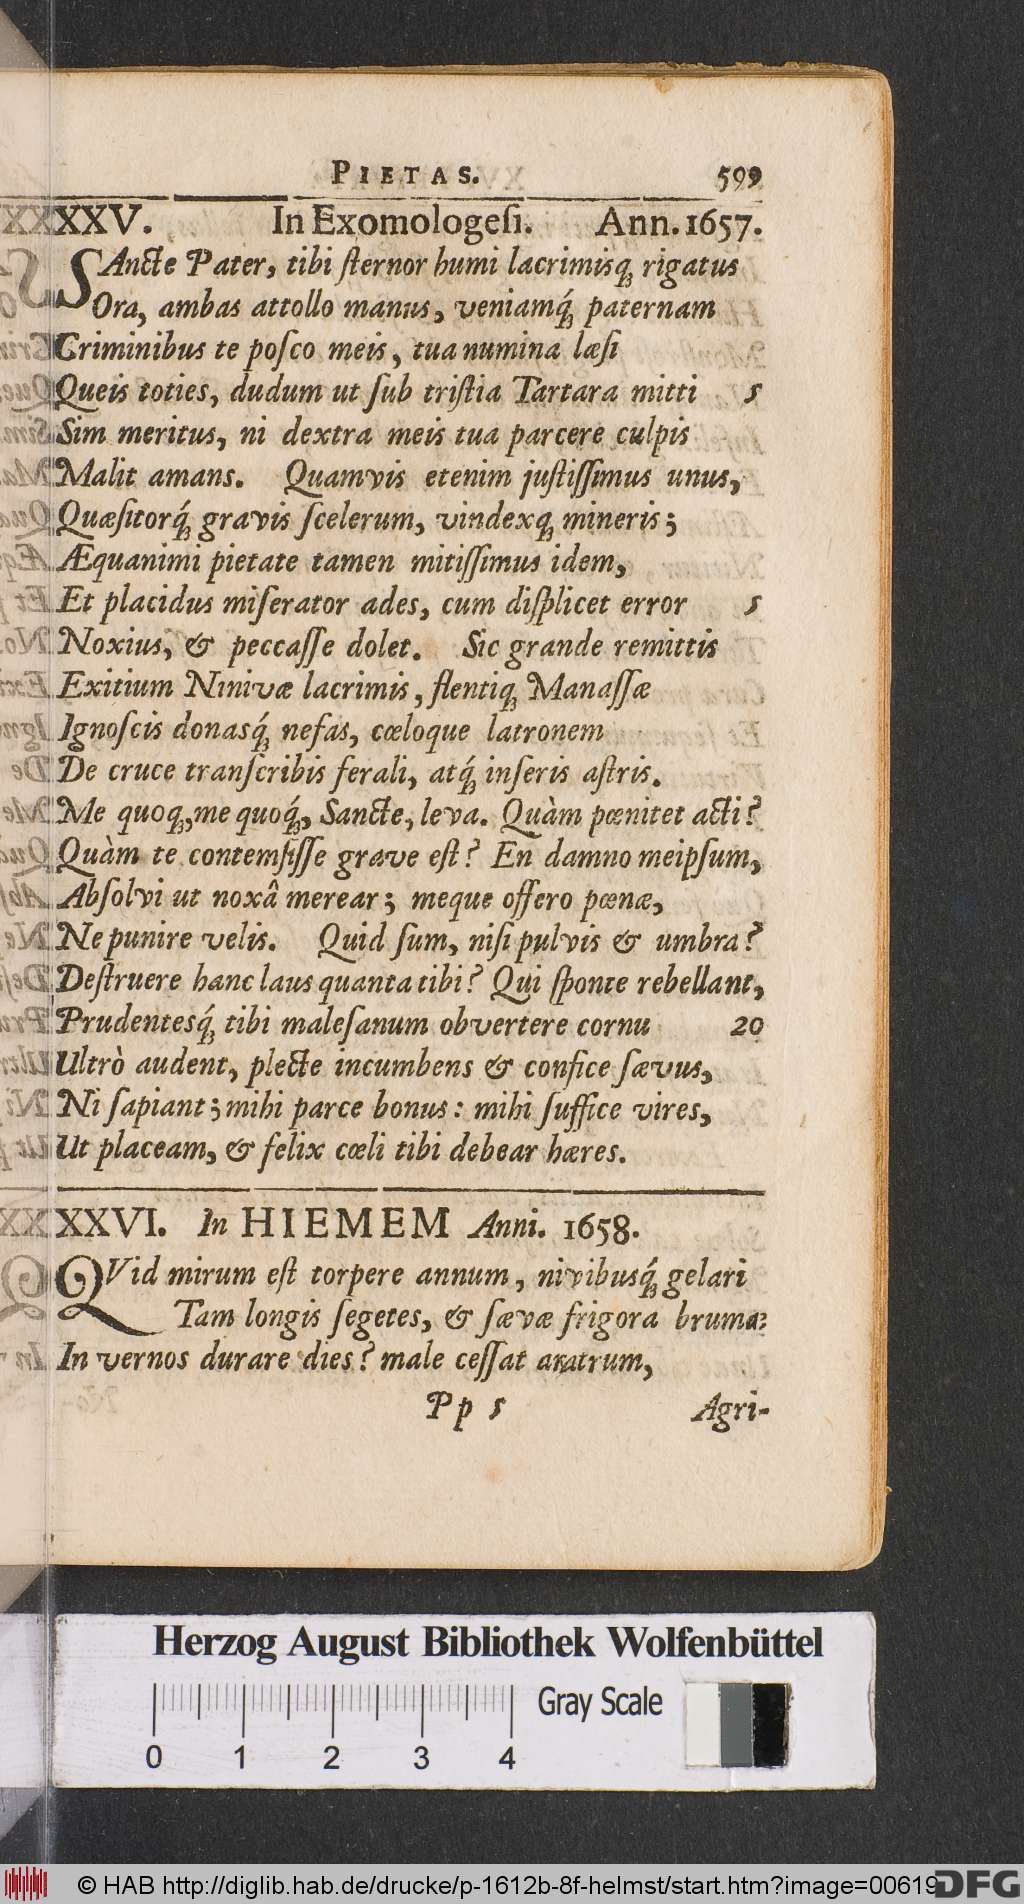 PIETAS. 599
XXXXV. In Exomologesi. Ann. 1657.
SAncte Pater, tibi sternor humi lacrimisq; rigatus
Ora, ambas attollo manus, veniamq́; paternam
Criminibus te posco meis, tua numina læsi
Queis toties, dudum ut sub tristia Tartara mitti 5
Sim meritus, ni dextra meis tua parcere culpis
Malit amans. Quamvis etenim justissimus unus,
Quæsitorq́; gravis scelerum, vindexq; mineris;
Æquanimi pietate tamen mitissimus idem,
Et placidus miserator ades, cum displicet error 5
Noxius, & peccasse dolet. Sic grande remittis
Exitium Ninivæ lacrimis, flentiq; Manassæ
Ignoscis donasq́; nefas, cœloque latronem
De cruce transcribis ferali, atq́; inseris astris.
Me quoq;, me quoq́;, Sancte, leva. Quàm pœnitet acti?
Quàm te contemsisse grave est? En damno meipsum,
Absolvi ut noxâ merear; meque offero pœnæ,
Ne punire velis. Quid sum, nisi pulvis & umbra?
Destruere hanc laus quanta tibi? Qui sponte rebellant,
Prudentesq́; tibi malesanum obvertere cornu 20
Ultrò audent, plecte incumbens & confice sævus,
Ni sapiant; mihi parce bonus: mihi suffice vires,
Ut placeam, & felix cœli tibi debear hæres.
XXXXVI. In HIEMEM Anni. 1658.
QVid mirum est torpere annum, nivibusq́; gelari
Tam longis segetes, & sævæ frigora brumæ
In vernos durare dies? male cessat aratrum,
Pp 5 Agri-
Herzog August Bibliothek Wolfenbüttel
Gray Scale
0 1 2 3 4
© HAB http://diglib.hab.de/drucke/p-1612b-8f-helmst/start.htm?image=00619
DFG